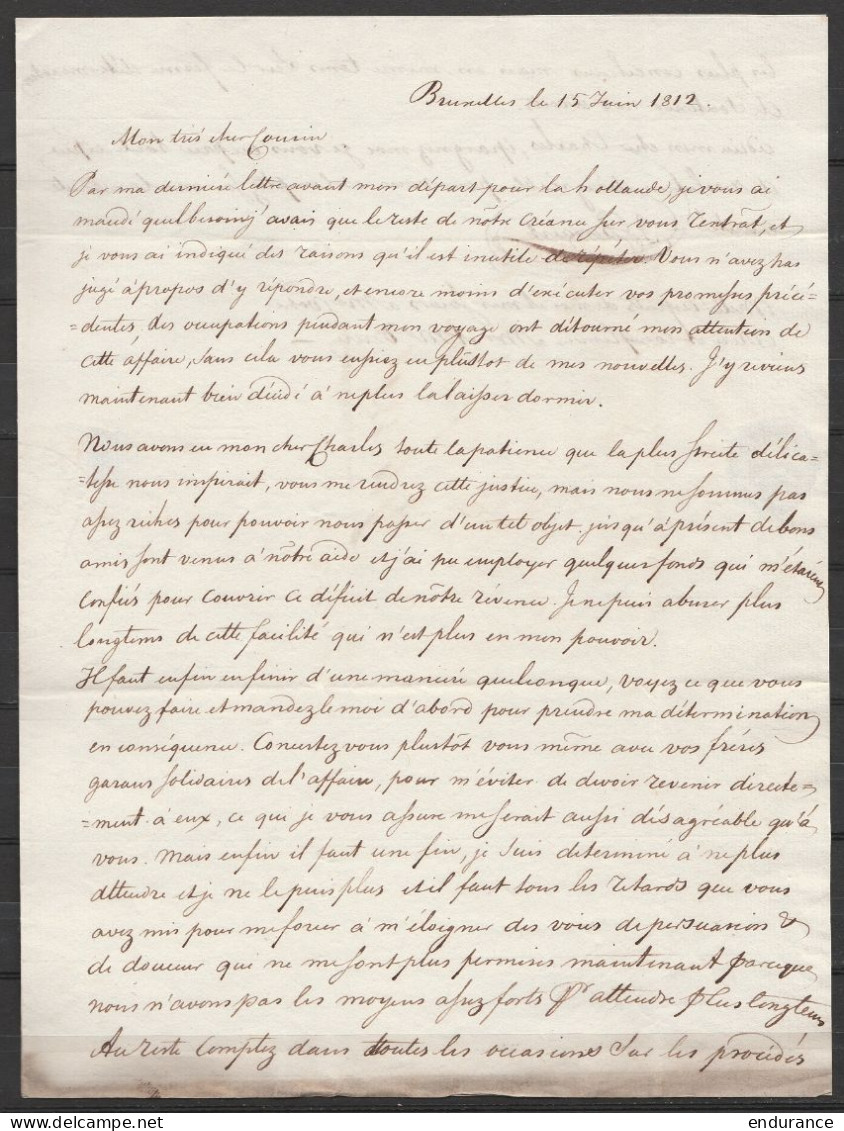 Bruxelles le 15 Juin 1812.
Mon trés cher Cousin
Par ma derniére lettre avant mon départ pour la hollande, je vous ai
mandé quel besoin j'avais que le reste de nôtre créance sur vous rentrât, et
je vous ai indiqué des raisons qu'il est inutile de répéter. Vous n'avez pas
jugé àpropos d'y répondre, et encore moins d'exécuter vos promesses précé-
=dentes. des occupations pendant mon voyage ont détourné mon attention de
cette affaire, sans cela vous eussiez eu plustot de mes nouvelles. J'y reviens
maintenant bien décidé à ne plus la laisser dormir.
Nous avons eu mon cher Charles toute la patience que la plus stricte délica-
=tesse nous inspirait, vous me rendrez cette justice, mais nous ne sommes pas
assez riches pour pouvoir nous passer d'un tel objet. jusqu'à présent de bons
amis sont venus à nôtre aide et j'ai pu employer quelques fonds qui m'étaient
confiés pour couvrir ce déficit de nôtre révenu. Je ne puis abuser plus
longtems de cette facilité qui n'est plus en mon pouvoir.
Il faut enfin en finir d'une maniére quelconque, voyez ce que vous
pouvez faire et mandez le moi d'abord pour prendre ma détermination
en conséquence. Concertez vous plustôt vous même avec vos fréres
garans solidaires de l'affaire, pour m'éviter de devoir revenir directe=
=ment à eux, ce qui je vous assure me serait aussi désagréable qu'à
vous. Mais enfin il faut une fin, je suis determiné à ne plus
attendre et je ne le puis plus et il faut tous les retards que vous
avez mis pour me forcer à m'éloigner des voies de persuasion &
de douceur qui ne me sont plus permises maintenant parceque
nous n'avons pas les moyens assez forts Pr attendre plus longtems
Au reste comptez dans toutes les occasions sur les procédés
endurance